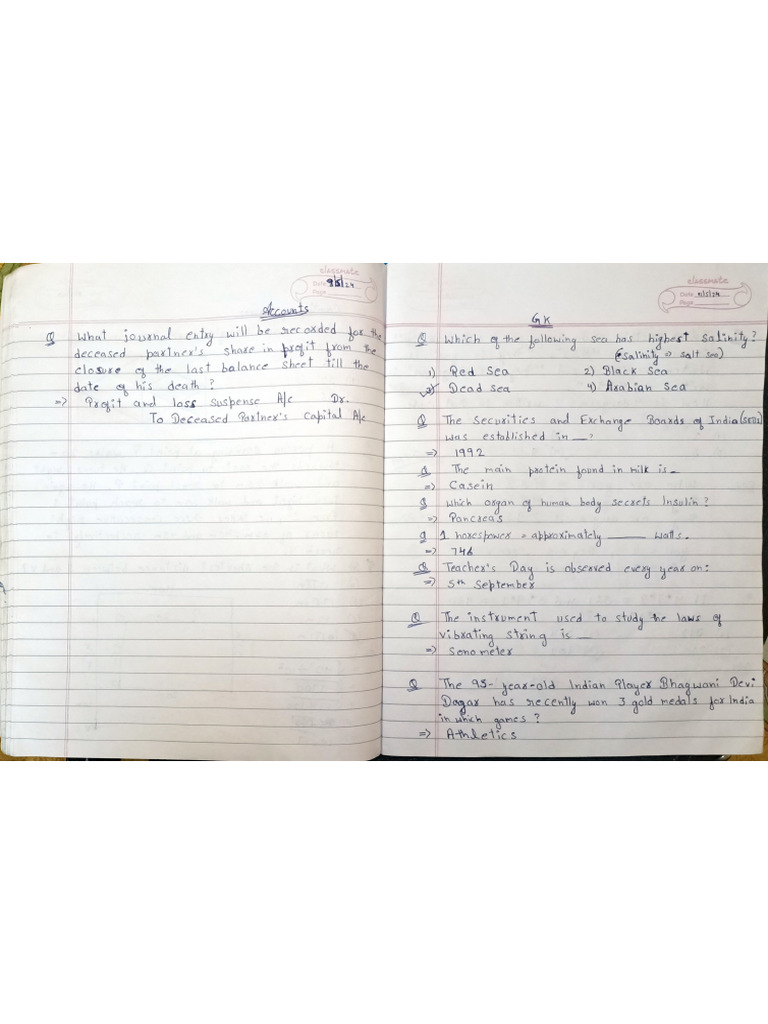 classmate
Date 9/5/24
Page
Accounts
Q What journal entry will be recorded for the
deceased partner's share in profit from the
closure of the last balance sheet till the
date of his death ?
=> Profit and loss suspense A/c Dr.
To Deceased Partner's Capital A/c
classmate
Date 9/5/24
Page
GK
Q Which of the following sea has highest salinity?
(salinity => salt sea)
1) Red Sea 2) Black Sea
3) Dead sea 4) Arabian Sea
Q The Securities and Exchange Boards of India (SEBI)
was established in __ ?
=> 1992
Q The main protein found in milk is _
=> Casein
Q Which organ of human body secrets Insulin ?
=> Pancreas
Q 1 horespower = approximately ____ watts.
=> 746
Q Teacher's Day is observed every year on :
=> 5th September
Q The instrument used to study the laws of
vibrating string is __
=> Sonometer
Q The 95- year-old Indian Player Bhagwani Devi
Dagar has recently won 3 gold medals for India
in which games ?
=> Athletics